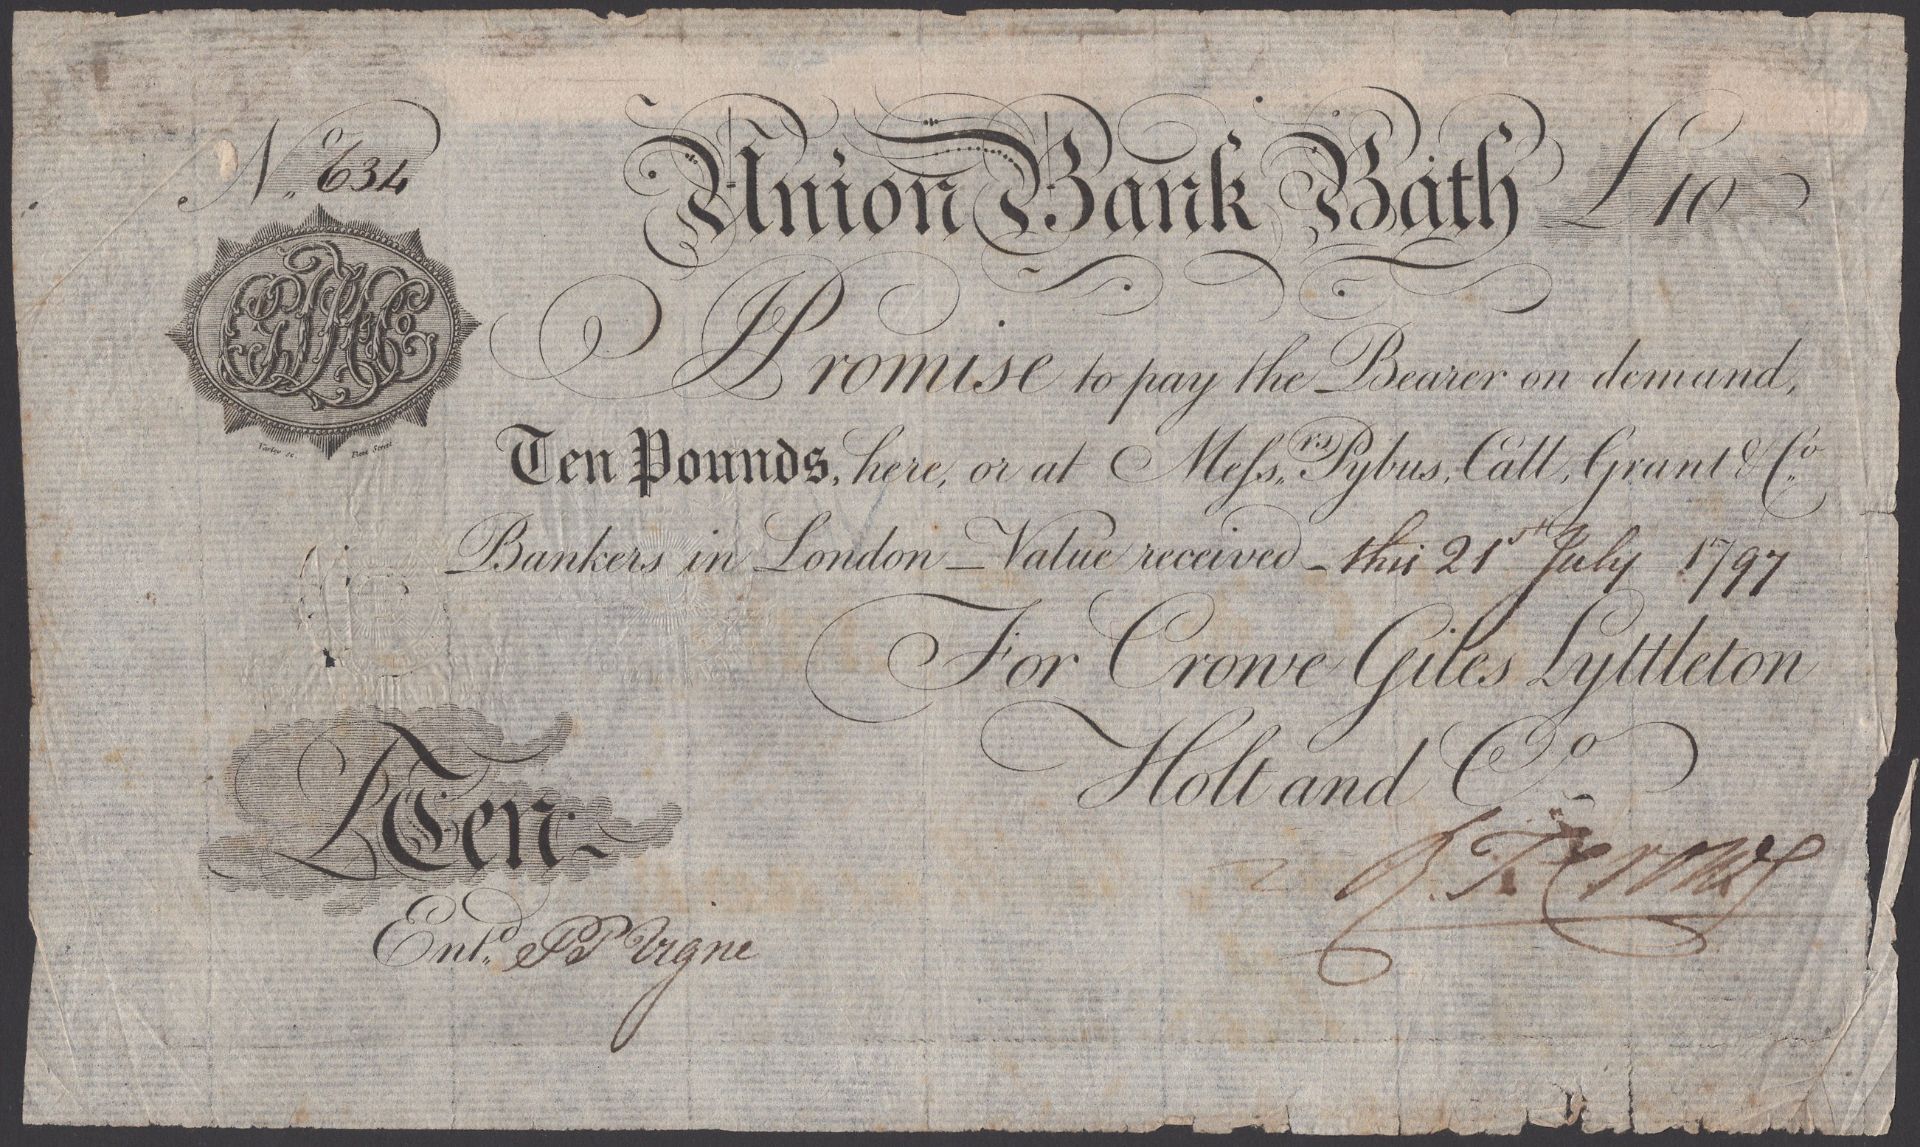 No. 634
Union Bank Bath £10
I Promise to pay the Bearer on demand,
Ten Pounds, here, or at Mess.rs Pybus, Call, Grant & Co.
Bankers in London — Value received — this 21st July 1797
For Crowe Giles Lyttleton
Holt and Co
£Ten
Entd. Vigne
Crowe